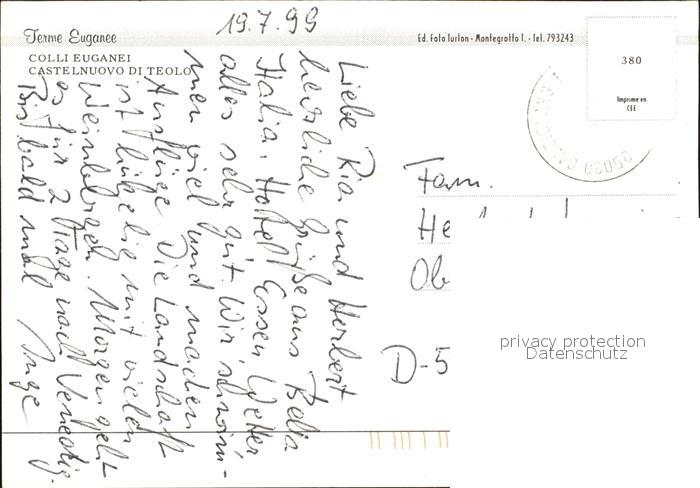 19.7.99
Terme Euganee
COLLI EUGANEI
CASTELNUOVO DI TEOLO
Ed. Foto Turlon - Montegrotto T. - Tel. 793243
380
Imprime en
CEE
35030
Liebe Ria und Herbert
herzliche Grüße aus Bella
Italia. Hotel Essen Wetter
alles sehr gut. Wir schwim-
men viel und machen
Ausflüge. Die Landschaft
ist hügelig mit vielen
Weinbergen. Morgen geht
es für 2 Tage nach Venedig.
Bis bald mal Inge
Fam.
He
Ob
D-5
privacy protection
Datenschutz